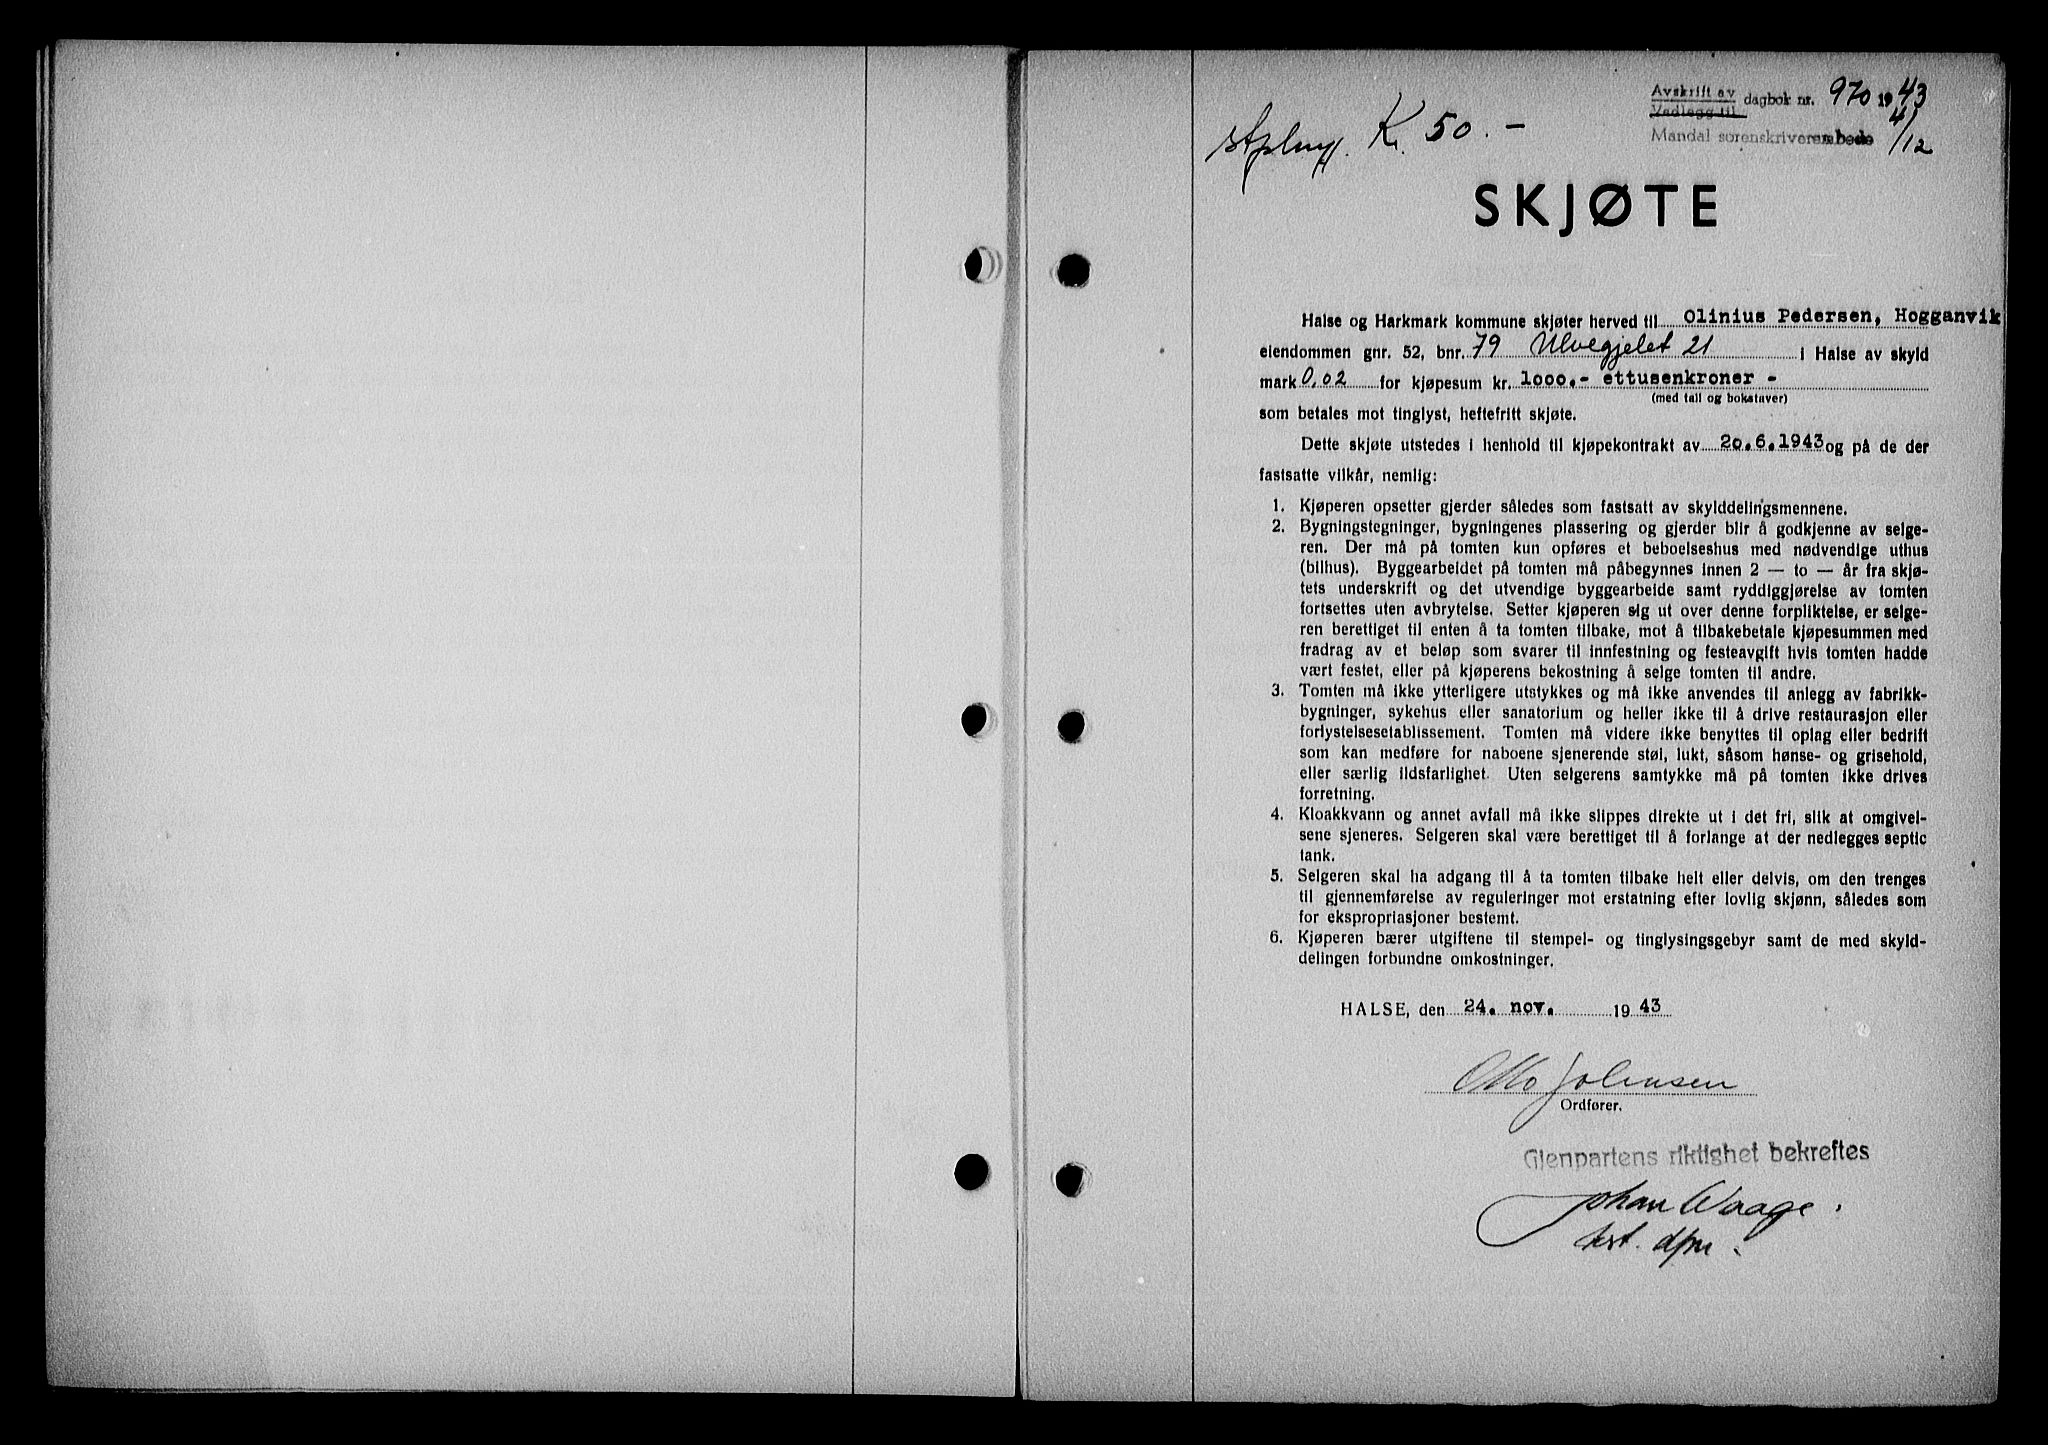 Avskrift av
Vedlegg til
dagbok nr. 970 1943
Mandal sorenskriverembede 4/12
Kr. 50.-
SKJØTE
Halse og Harkmark kommune skjøter herved til Olinius Pedersen, Hogganvik
eiendommen gnr. 52, bnr. 79 Ulvegjelet 21 i Halse av skyld
mark 0,02 for kjøpesum kr. 1000.- ettusenkroner -
(med tall og bokstaver)
som betales mot tinglyst, heftefritt skjøte.
Dette skjøte utstedes i henhold til kjøpekontrakt av 20.6.1943 og på de der
fastsatte vilkår, nemlig:
1. Kjøperen opsetter gjerder således som fastsatt av skylddelingsmennene.
2. Bygningstegninger, bygningenes plassering og gjerder blir å godkjenne av selge-
ren. Der må på tomten kun opføres et beboelseshus med nødvendige uthus
(bilhus). Byggearbeidet på tomten må påbegynnes innen 2 — to — år fra skjø-
tets underskrift og det utvendige byggearbeide samt ryddiggjørelse av tomten
fortsettes uten avbrytelse. Setter kjøperen sig ut over denne forpliktelse, er selge-
ren berettiget til enten å ta tomten tilbake, mot å tilbakebetale kjøpesummen med
fradrag av et beløp som svarer til innfestning og festeavgift hvis tomten hadde
vært festet, eller på kjøperens bekostning å selge tomten til andre.
3. Tomten må ikke ytterligere utstykkes og må ikke anvendes til anlegg av fabrikk-
bygninger, sykehus eller sanatorium og heller ikke til å drive restaurasjon eller
forlystelsesetablissement. Tomten må videre ikke benyttes til oplag eller bedrift
som kan medføre for naboene sjenerende støl, lukt, såsom hønse- og grisehold,
eller særlig ildsfarlighet. Uten selgerens samtykke må på tomten ikke drives
forretning.
4. Kloakkvann og annet avfall må ikke slippes direkte ut i det fri, slik at omgivel-
sene sjeneres. Selgeren skal være berettiget til å forlange at der nedlegges septic
tank.
5. Selgeren skal ha adgang til å ta tomten tilbake helt eller delvis, om den trenges
til gjennemførelse av reguleringer mot erstatning efter lovlig skjønn, således som
for ekspropriasjoner bestemt.
6. Kjøperen bærer utgiftene til stempel- og tinglysingsgebyr samt de med skyld-
delingen forbundne omkostninger.
HALSE, den 24. nov. 1943
Otto Johnsen
Ordfører.
Gjenpartens riktighet bekreftes
Johan Waage.